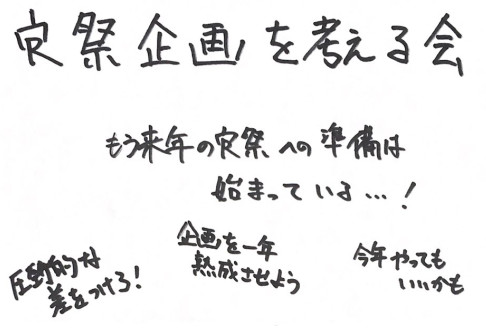 寮祭企画を考える会
もう来年の寮祭への準備は
始まっている…!
圧倒的な
差をつけろ!
企画を一年
熟成させよう
今年やっても
いいかも